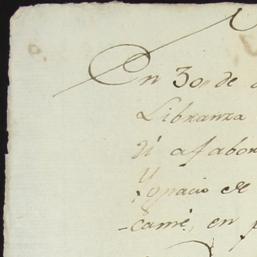 En 30, de
Libranza
di afabor
Ygnacio de
-cami, en